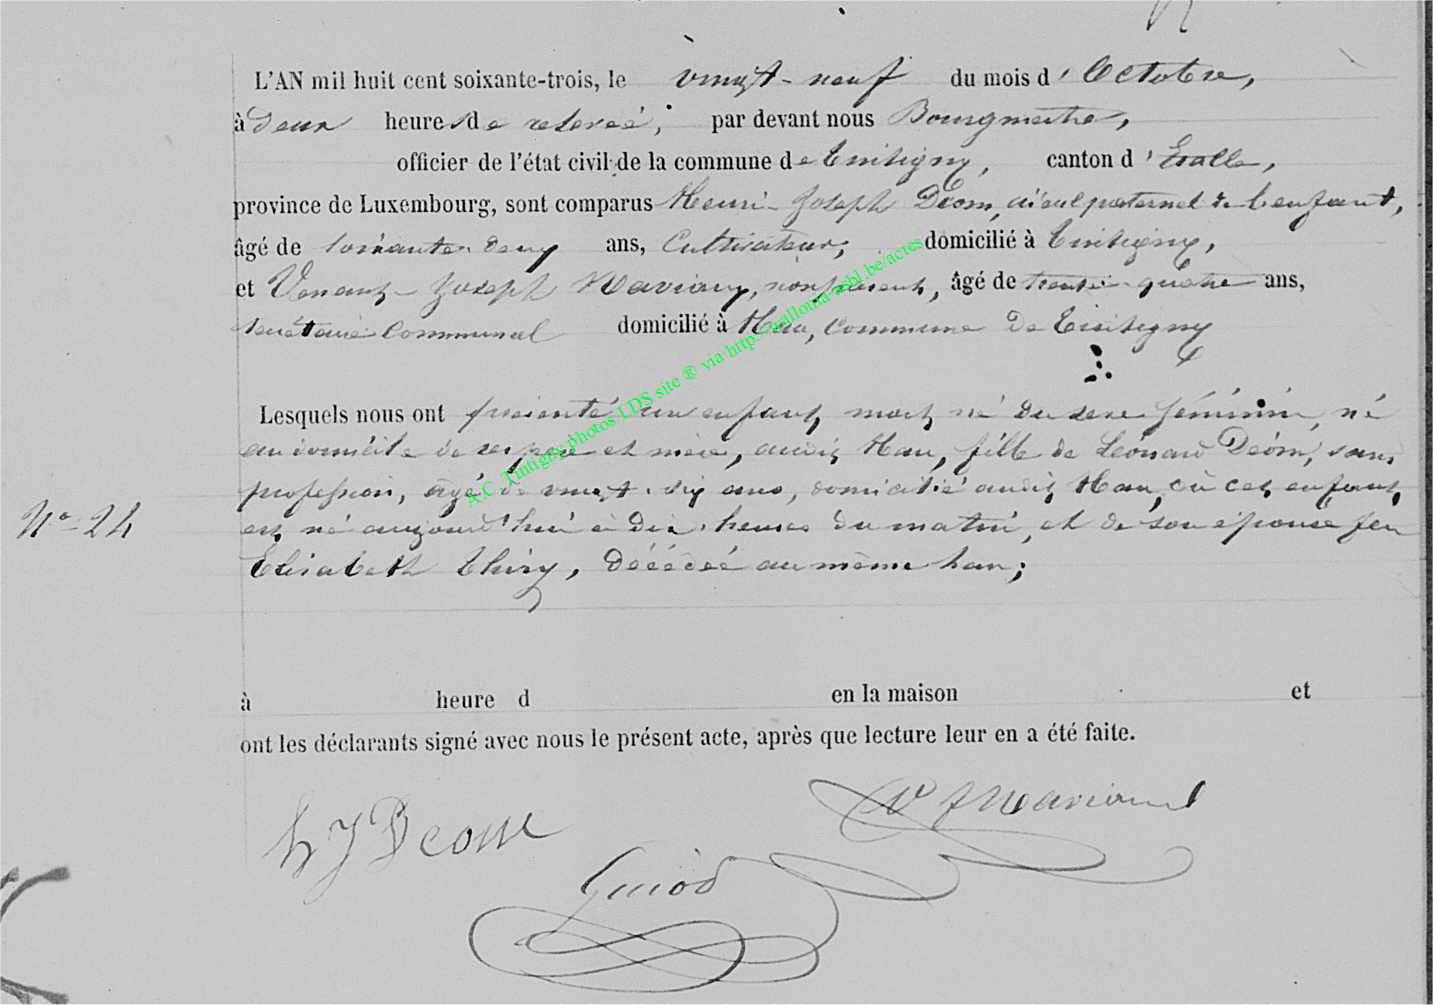 L'AN mil huit cent soixante-trois, le vingt-neuf du mois d'Octobre,
à deux heures de relevée, par devant nous Bourgmestre,
officier de l'état civil de la commune de Tintigny, canton d'Etalle,
province de Luxembourg, sont comparus Henri-Joseph Déom, aïeul paternel de l'enfant,
âgé de soixante-deux ans, Cultivateur, domicilié à Tintigny,
et Venant-Joseph Maviany, non parent, âgé de trente-quatre ans,
secrétaire Communal domicilié à Han, commune de Tintigny
Lesquels nous ont présenté un enfant mort né du sexe féminin, né
au domicile de ses père et mère, audit Han, fille de Léonard Déom, sans
profession, âgé de vingt-six ans, domicilié audit Han, où cet enfant
N° 24
est né aujourd'hui à dix heures du matin, et de son épouse feu
Elisabeth Thiry, décédée au même han;
à heure d en la maison et
ont les déclarants signé avec nous le présent acte, après que lecture leur en a été faite.
HJ Deom
Guiod
A.C. Tintigny photos LDS site ® via http://wallonia-asbl.be/actes